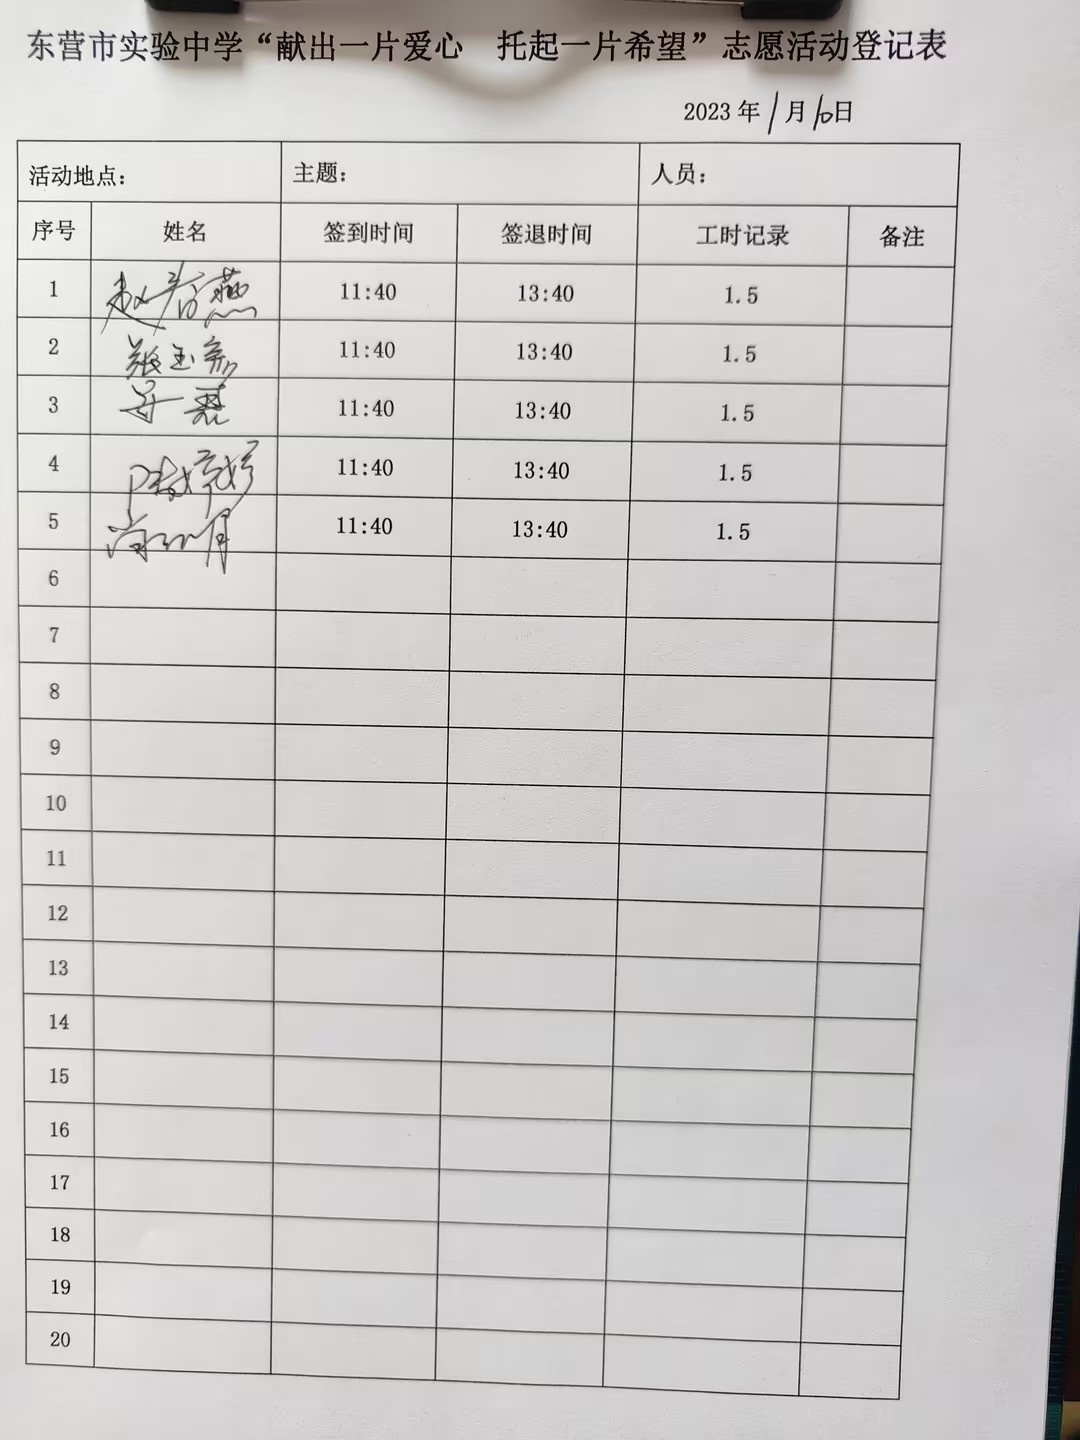 东营市实验中学“献出一片爱心 托起一片希望”志愿活动登记表
2023 年 1 月 10 日
活动地点： 主题： 人员：
序号 姓名 签到时间 签退时间 工时记录 备注
1 赵春燕 11:40 13:40 1.5
2 张玉 11:40 13:40 1.5
3 11:40 13:40 1.5
4 陈婷婷 11:40 13:40 1.5
5 11:40 13:40 1.5
6
7
8
9
10
11
12
13
14
15
16
17
18
19
20